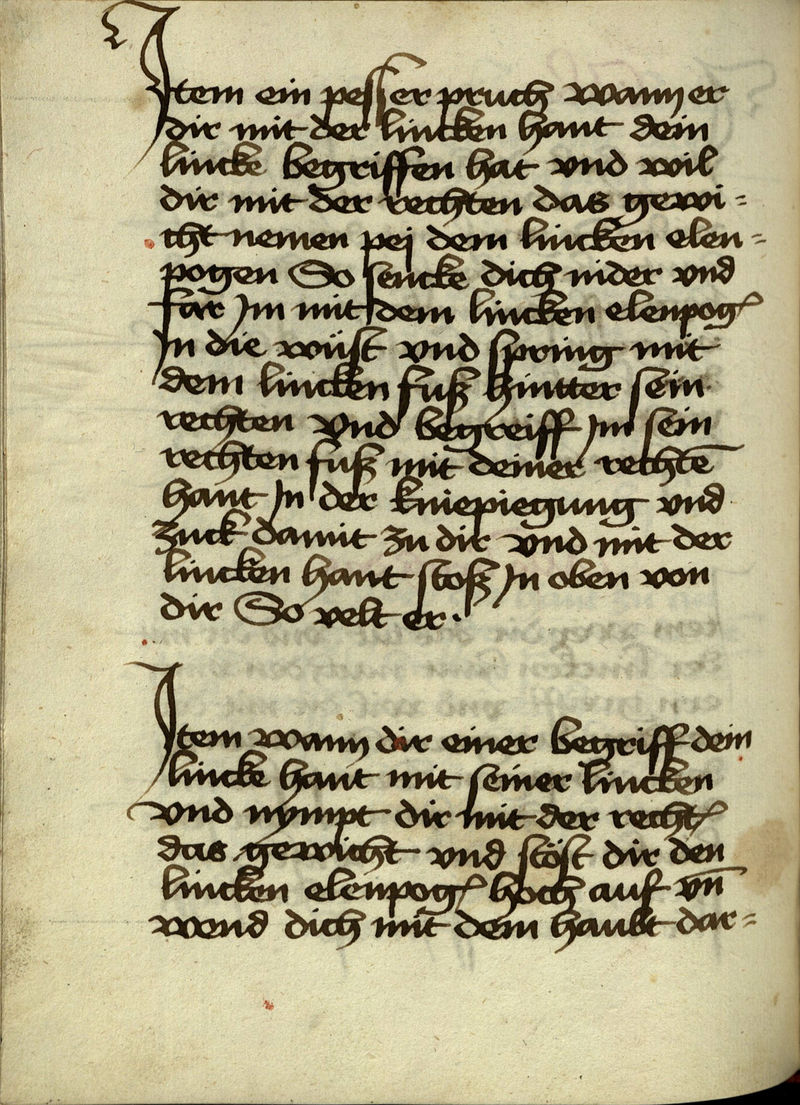 Item ein pesser pruch wann er
dir mit der lincken hant dein
lincke begriffen hat vnd wil
dir mit der rechten das gewi=
cht nemen pej dem lincken elen=
pogen So sencke dich nider vnd
far Im mit dem lincken elenpog̃
In die wüst vnd spring mit
dem lincken fuß hintter sein
rechten vnd begreiff Im sein
rechten fuß mit deiner rechtē
hant In der kniepiegung vnd
zuck damit zu dir vnd mit der
lincken hant stoß In oben von
dir So velt er.
Item wann dir einer begriff dein
lincke hant mit seiner lincken
vnd nympt dir mit der recht̃
das gewicht vnd stöst dir den
lincken elenpog̃ hoch auf vn̄
wend dich mit dem haubt dar=